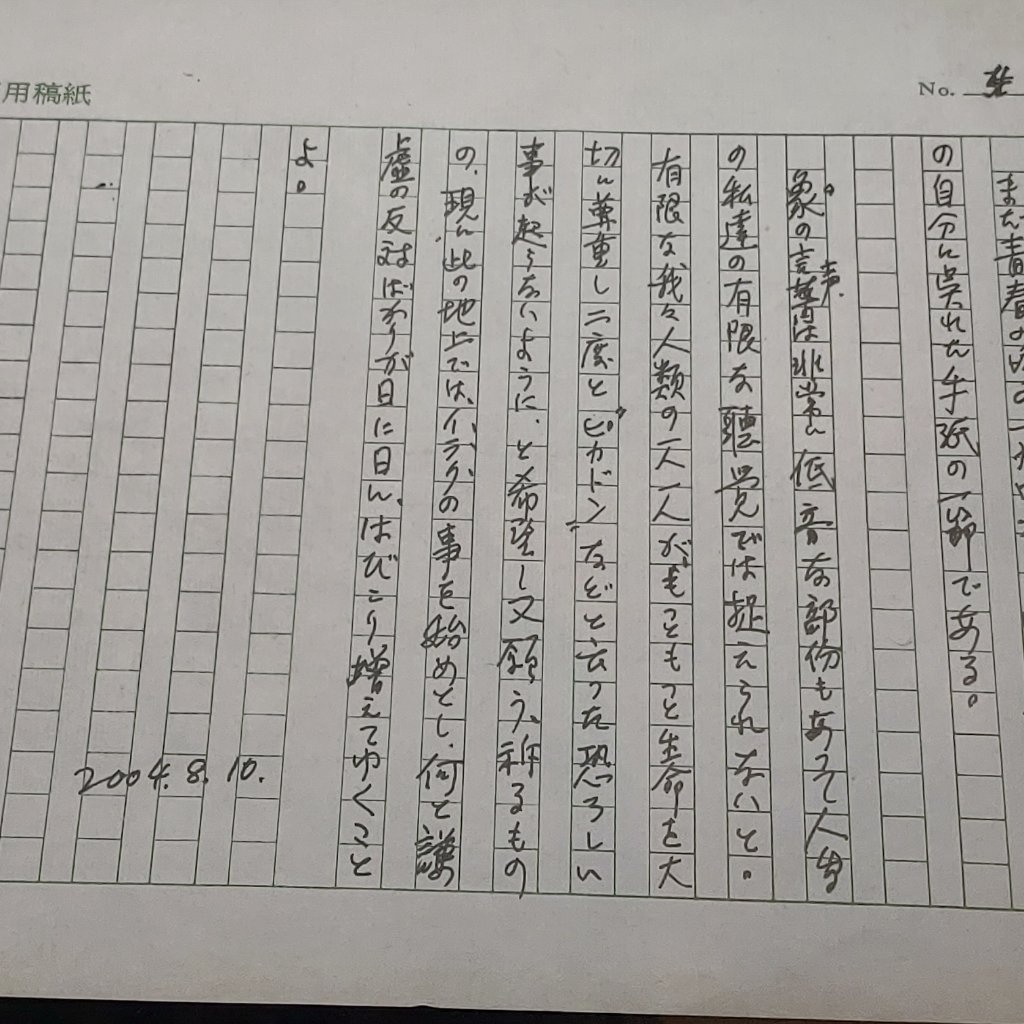 用稿紙
No.
まだ青春の
の自分に呉れた手紙の一節である。
象の言葉は非常に低音な部份もあって人生
声
の私達の有限な聴覚では捉えられないと。
有限な我々人類の一人一人がもっともっと生命を大
切に尊重し二度とピカドンなどと云った恐ろしい
事が起らないように、と希望し又願う、祈るもの
の、現に此の地上では、イラクの事を始めとし、何と謙
虚の反対ばかりが日に日に、はびこり増えてゆくこと
よ。
2004.8.10.